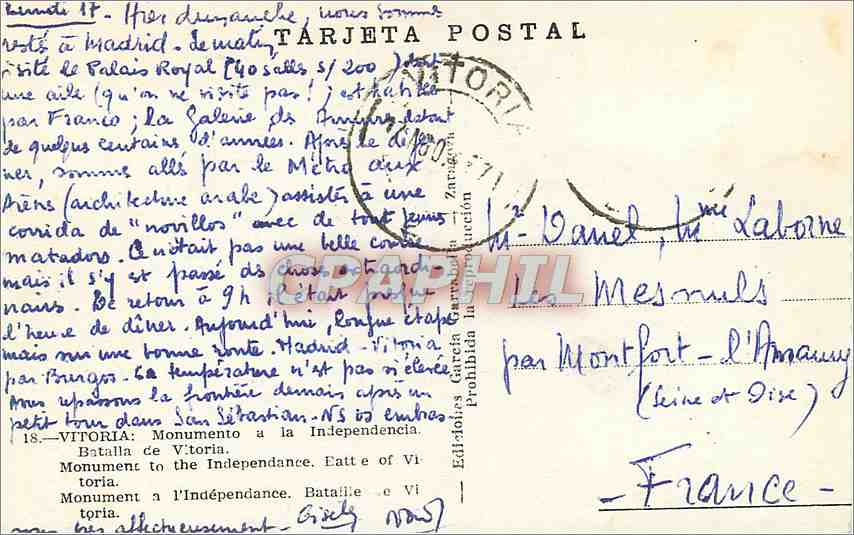 17 - Hier dimanche, nous sommes
restés à Madrid - le matin
TARJETA POSTAL
visité le Palais Royal (40 salles s/200) dont
une aile (qu'on ne visite pas!) est habitée
par Franco; la Galerie des Armures datant
de quelques centaines d'années. Après le déjeu-
ner, sommes allés par le Métro aux
Arènes (architecture arabe) assistés à une
corrida de "novillos" avec de tout jeunes
matadors. Ce n'était pas une belle corrida
mais il s'y est passé des choses extraordi-
naires. De retour à 9h, c'était presque
l'heure de dîner. Aujourd'hui, longue étape
mais sur une bonne route. Madrid - Vitoria
par Burgos. La température n'est pas si élevée
Nous repassons la frontière demain après un
petit tour dans San Sébastian. NS vs embras-
18.—VITORIA: Monumento a la Independencia.
Batalla de Vitoria.
Monument to the Independance. Battle of Vi-
toria.
Monument a l'Indépendance. Bataille de Vi-
toria.
sons très affectueusement - Gisèle
VITORIA
Ediciones García Garrabella — Zaragoza
Prohibida la reproducción
CPAPHIL
Mr Daniel, Mme Laborne
Les Mesnuls
par Montfort - l'Amaury
(Seine et Oise)
- France -